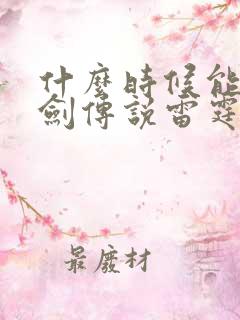 什麼時候能
劍傳說雷霆
最廢材